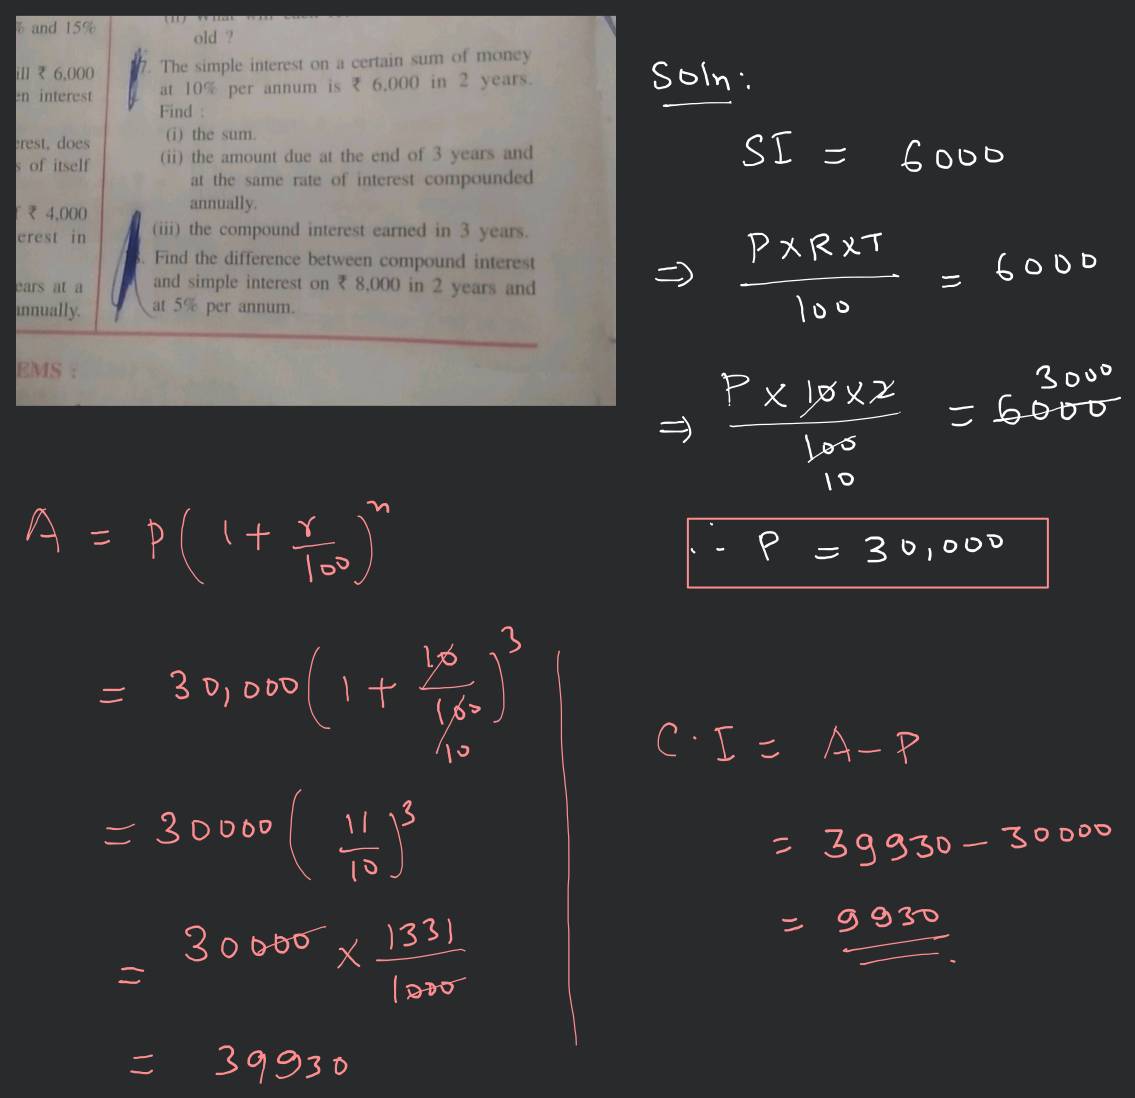 % and 15%
ill ₹ 6,000
en interest
erest, does
s of itself
₹ 4,000
erest in
ears at a
annually.
EMS :
old ?
7. The simple interest on a certain sum of money
at 10% per annum is ₹ 6,000 in 2 years.
Find :
(i) the sum.
(ii) the amount due at the end of 3 years and
at the same rate of interest compounded
annually.
(iii) the compound interest earned in 3 years.
Find the difference between compound interest
and simple interest on ₹ 8,000 in 2 years and
at 5% per annum.
Soln:
SI = 6000
⇒ P×R×T / 100 = 6000
⇒ P × 10 × 2 / 100 = 6000
3000
10
∴ P = 30,000
A = P(1 + r/100)^n
= 30,000(1 + 10/100)^3
10
= 30000(11/10)^3
= 30000 × 1331/1000
= 39930
C.I = A - P
= 39930 - 30000
= 9930.